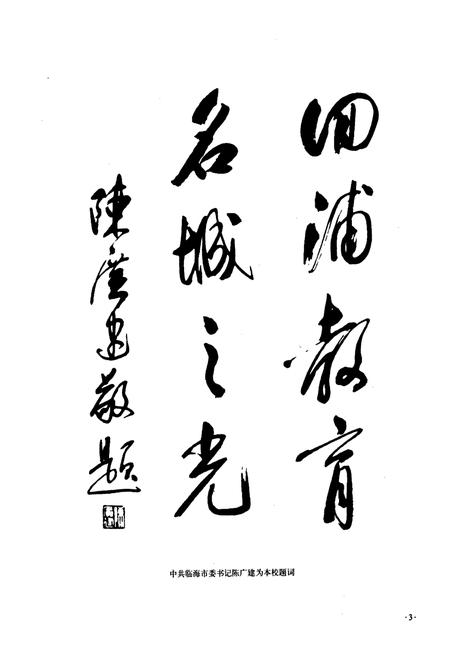 回浦教育
名城之光
陳廣建敬題
中共临海市委书记陈广建为本校题词
·3·